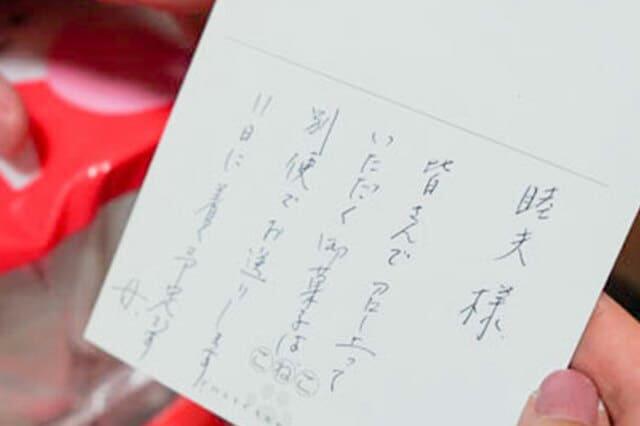 睦夫様
皆さんで召し上って
いただく御菓子は
別便でお送りします
11日に着く予定です
母、
こねこ